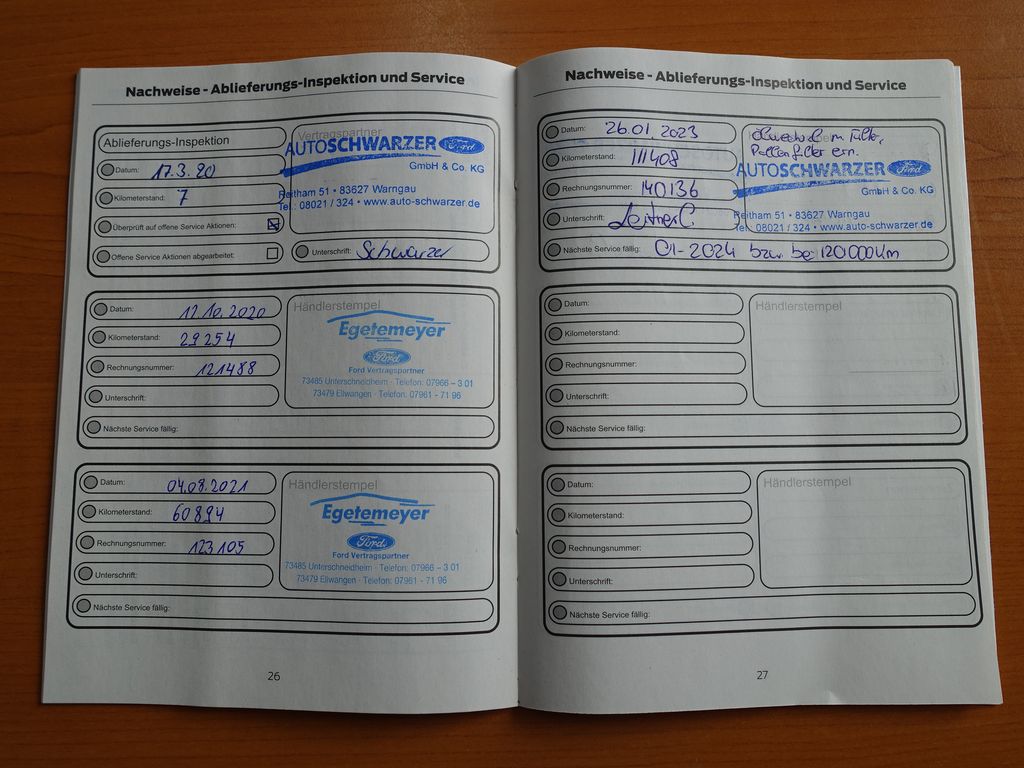 Nachweise - Ablieferungs-Inspektion und Service
Ablieferungs-Inspektion
Vertragspartner
AUTOSCHWARZER Ford
GmbH & Co. KG
Reitham 51 • 83627 Warngau
Tel.: 08021 / 324 • www.auto-schwarzer.de
Datum: 17.3.20
Kilometerstand: 7
Überprüft auf offene Service Aktionen:
Offene Service Aktionen abgearbeitet:
Unterschrift: Schwarzer
Datum: 12.10.2020
Kilometerstand: 29254
Rechnungsnummer: 121488
Unterschrift:
Nächste Service fällig:
Händlerstempel
Egetemeyer
Ford
Ford Vertragspartner
73485 Unterschneidheim · Telefon: 07966 – 3 01
73479 Ellwangen · Telefon: 07961 - 71 96
Datum: 04.08.2021
Kilometerstand: 60894
Rechnungsnummer: 123105
Unterschrift:
Nächste Service fällig:
Händlerstempel
Egetemeyer
Ford
Ford Vertragspartner
73485 Unterschneidheim · Telefon: 07966 – 3 01
73479 Ellwangen · Telefon: 07961 - 71 96
26
Nachweise - Ablieferungs-Inspektion und Service
Datum: 26.01.2023
Kilometerstand: 111408
Rechnungsnummer: 140136
Unterschrift: Leitner C.
Nächste Service fällig: 01-2024 bzw. bei 120000km
Ölwechsel m Filter,
Pollenfilter ern.
AUTOSCHWARZER Ford
GmbH & Co. KG
Reitham 51 • 83627 Warngau
Tel.: 08021 / 324 • www.auto-schwarzer.de
Datum:
Kilometerstand:
Rechnungsnummer:
Unterschrift:
Nächste Service fällig:
Händlerstempel
Datum:
Kilometerstand:
Rechnungsnummer:
Unterschrift:
Nächste Service fällig:
Händlerstempel
27